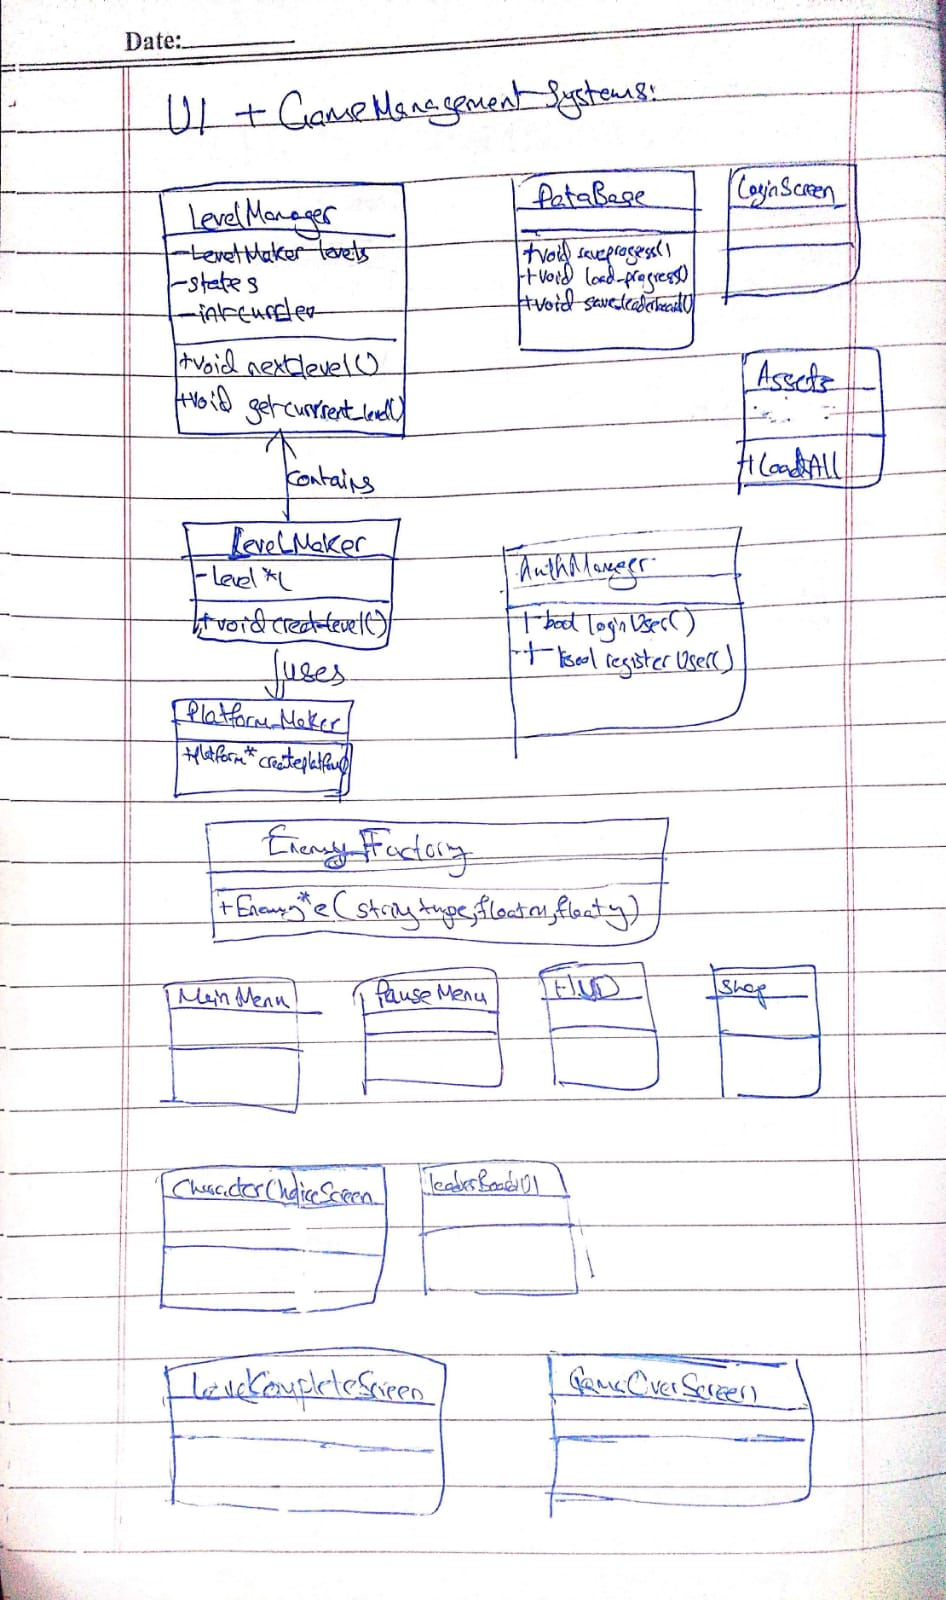 Date:
UI + GameManagement Systems:
LevelManager
-LevelMaker levels
-states
-int curlev
+void nextlevel()
+void getcurrrent_level()
DataBase
+void saveprogess()
+void load-progress()
+void saveleaderboard()
LoginScreen
Assets
+LoadAll
contains
LevelMaker
-Level*l
+void creatlevel()
AuthManager
+ bool loginUser()
+ bool registerUser()
uses
Platform_Maker
+Platform* createplatform()
EnemyFactory
+Enemy*e(string type,float x,float y)
MainMenu
PauseMenu
HUD
Shop
CharacterChoiceScreen
leaderBoardUI
LevelCompleteScreen
GameOverScreen